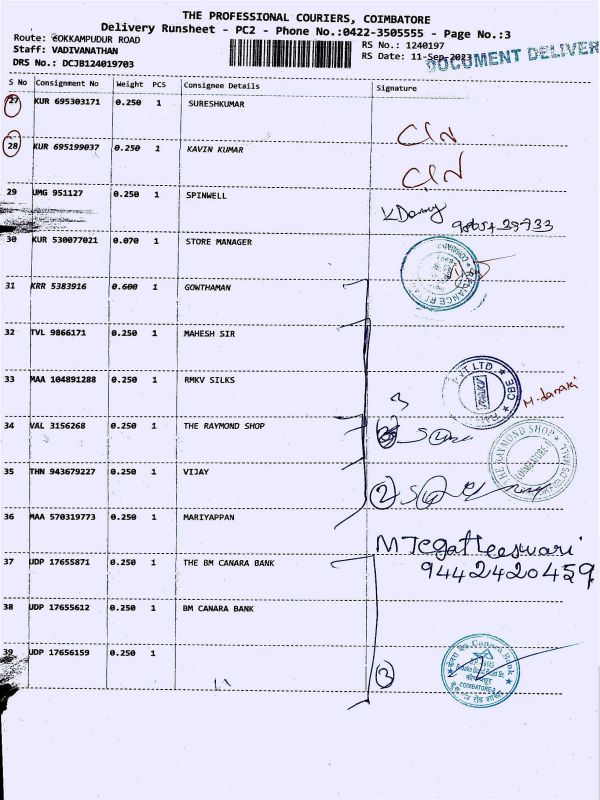 THE PROFESSIONAL COURIERS, COIMBATORE
Delivery Runsheet - PC2 - Phone No.:0422-3505555 - Page No.:3
Route: GOKKAMPUDUR ROAD
RS No.: 1240197
Staff: VADIVANATHAN
RS Date: 11-Sep-2023
DOCUMENT DELIVER
DRS No.: DCJB124019703
S No Consignment No Weight PCS Consignee Details Signature
27 KUR 695303171 0.250 1 SURESHKUMAR
C/N
28 KUR 695199037 0.250 1 KAVIN KUMAR
C/N
29 UMG 951127 0.250 1 SPINWELL
30 KUR 530077021 0.070 1 STORE MANAGER
31 KRR 5383916 0.600 1 GOWTHAMAN
32 TVL 9866171 0.250 1 MAHESH SIR
33 MAA 104891288 0.250 1 RMKV SILKS
PVT LTD. CBE
3
34 VAL 3156268 0.250 1 THE RAYMOND SHOP
THE RAYMOND SHOP
COIMBATORE
35 THN 943679227 0.250 1 VIJAY
2
36 MAA 570319773 0.250 1 MARIYAPPAN
M Jegatheeswari
9442420459
37 UDP 17655871 0.250 1 THE BM CANARA BANK
38 UDP 17655612 0.250 1 BM CANARA BANK
39 UDP 17656159 0.250 1
3
Canara Bank
COIMBATORE